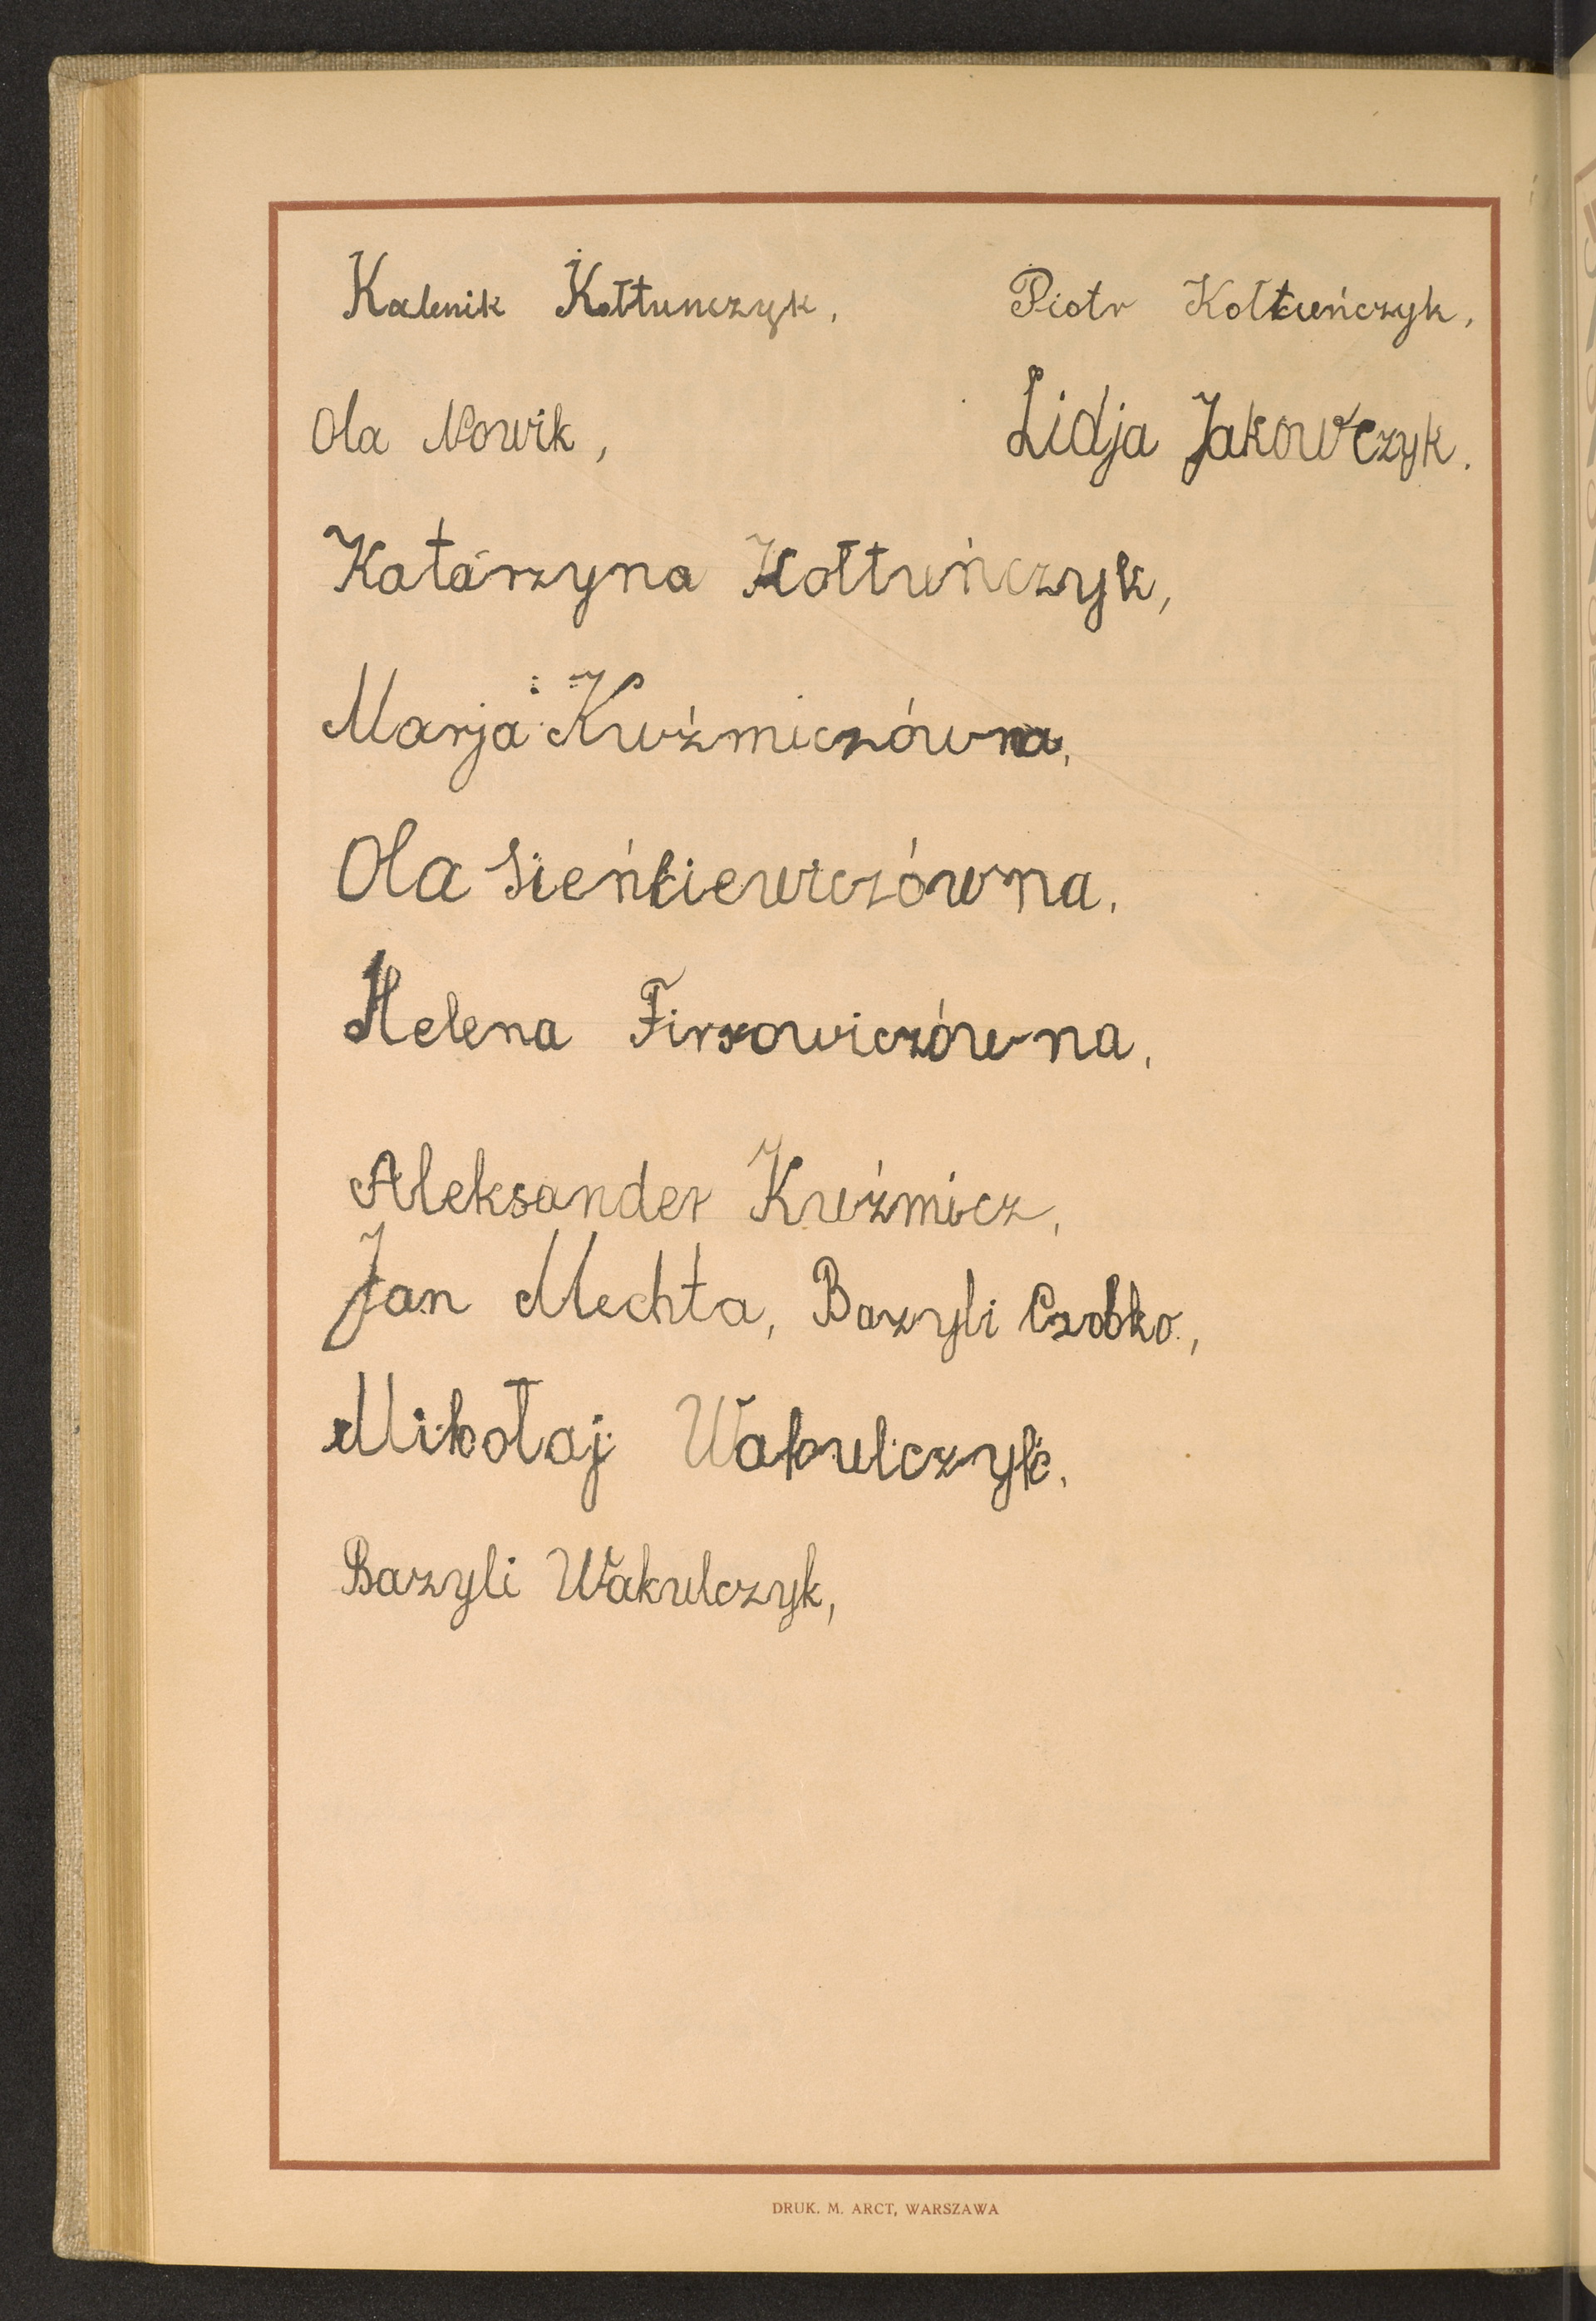 Kalenik Kołtunczyk, Piotr Kołtuńczyk,
Ola Nowik, Lidja Jakowczyk.
Katarzyna Kołtuńczyk,
Marja Kuźmiczówna,
Ola Sieńkiewiczówna,
Helena Firsowiczówna,
Aleksander Kuźmicz,
Jan Mechta, Bazyli Czobko,
Mikołaj Wakulczyk,
Bazyli Wakulczyk,
DRUK. M. ARCT, WARSZAWA